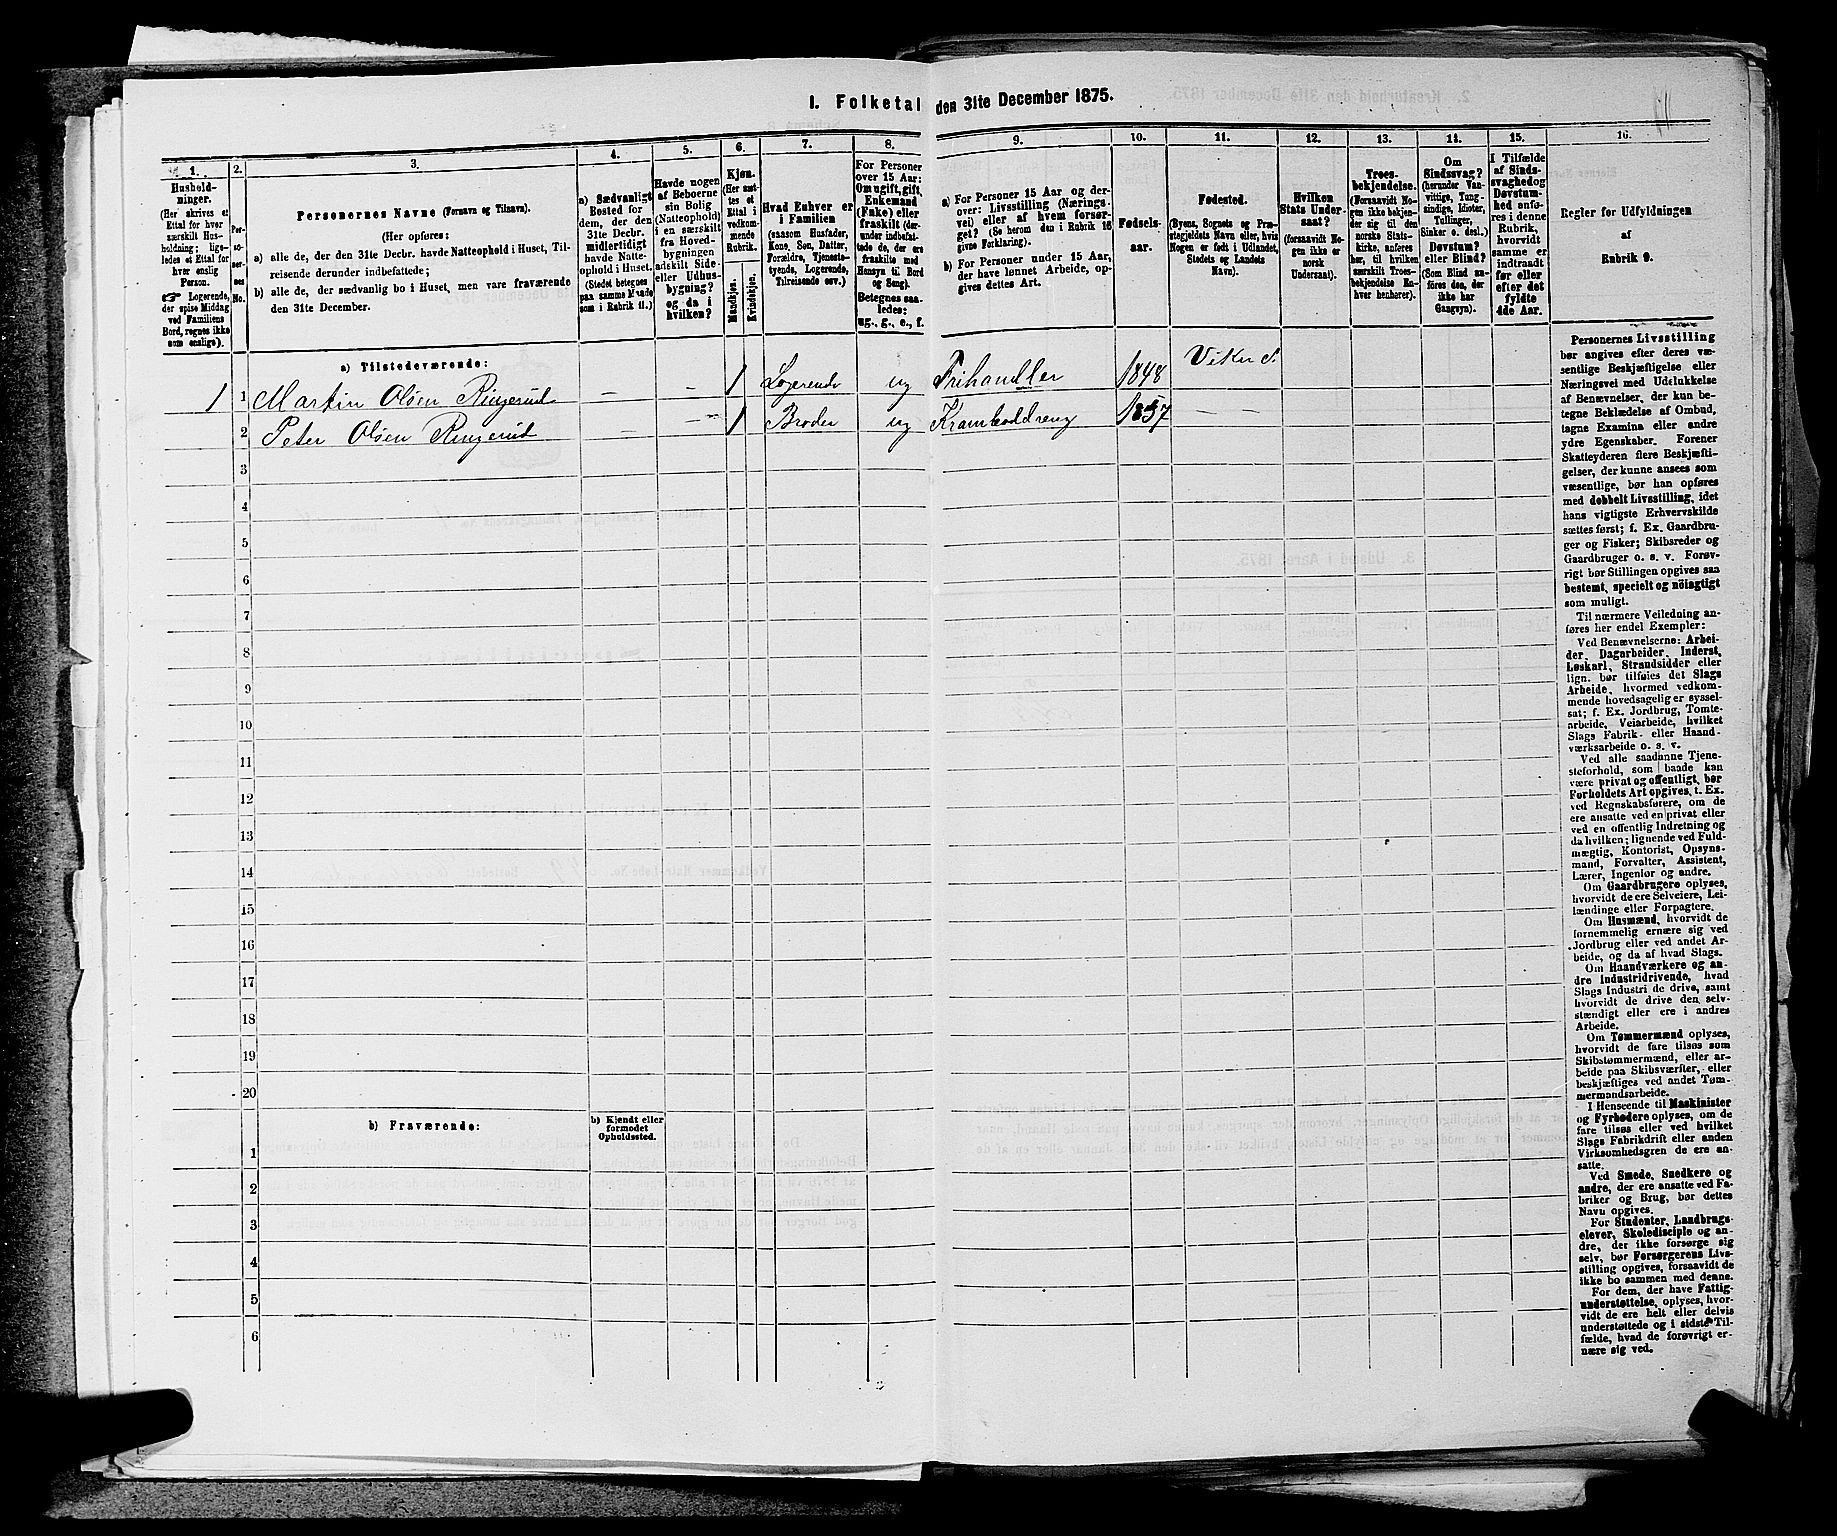 1. Folketal den 31te December 1875.
1.
2.
3.
4.
5.
6.
7.
8.
9.
10.
11.
12.
13.
14.
15.
16.
Hushold-
ninger.
(Her skrives et
Ettal for hver
særskilt Hus-
holdning; lige-
ledes et Ettal for
hver enslig
Person.
☞ Logerende,
der spise Middag
ved Familiens
Bord, regnes ikke
som enslige).
Per-
so-
ner-
nes
No.
Personernes Navne (Fornavn og Tilnavn).
(Her opføres:
a) alle de, der den 31te Decbr. havde Natteophold i Huset, Til-
reisende derunder indbefattede;
b) alle de, der sædvanlig bo i Huset, men vare fraværende
den 31te December.
a) Sædvanligt
Bosted for
dem, der den
31te Decbr.
midlertidigt
havde Natte-
ophold i Huset.
(Stedet betegnes
paa samme Maade
som i Rubrik 11.)
Havde nogen
af Beboerne
sin Bolig
(Natteophold)
i en særskilt
fra Hoved-
bygningen
adskilt Side-
eller Udhus-
bygning?
og da i
hvilken?
Kjøn.
(Her sæt-
tes et
Ettal i
vedkom-
mende
Rubrik.
Mandkjøn.
Kvindekjøn.
Hvad Enhver er
i Familien
(saasom Husfader,
Kone, Søn, Datter,
Forældre, Tjeneste-
tyende, Logerende,
Tilreisende osv.)
For Personer
over 15 Aar:
Om ugift, gift,
Enkemand
(Enke) eller
fraskilt (der-
under indbefat-
tede de, der ere
fraskilte med
Hensyn til Bord
og Seng).
Betegnes saa-
ledes:
ug., g., e., f.
a) For Personer 15 Aar og der-
over: Livsstilling (Nærings-
vei) eller af hvem forsør-
get? (Se herom den i Rubrik 16
givne Forklaring).
b) For Personer under 15 Aar,
der have lønnet Arbeide, op-
gives dettes Art.
Fødsels-
aar.
Fødested.
(Byens, Sognets og Præ-
stegjeldets Navn eller, hvis
Nogen er født i Udlandet,
Stedets og Landets
Navn).
Hvilken
Stats Under-
saat?
(forsaavidt No-
gen ikke er
norsk
Undersaat).
Troes-
bekjendelse.
(Forsaavidt No-
gen ikke bekjen-
der sig til den
norske Stats-
kirke, anføres
her, til hvilken
særskilt Troes-
bekjendelse En-
hver henhører).
Om
Sindssvag?
(herunder Van-
vittige, Tung-
sindige, Idioter,
Tullinger,
Sinker o. desl.)
Døvstum?
eller Blind?
(Som Blind an-
føres den, der
ikke har
Gangsyn).
I Tilfælde
af Sinds-
svaghed og
Døvstum-
hed anfø-
res i denne
Rubrik,
hvorvidt
samme er
indtraadt
før eller
efter det
fyldte
4de Aar.
Regler for Udfyldningen
af
Rubrik 9.
a) Tilstedeværende:
1 1 Martin Olsen Ringerud — — 1 Logerende ug Frihandler 1848 Viker S.
2 Peter Olsen Ringerud — — 1 Broder ug Kramboddreng 1857 — —
3
4
5
6
7
8
9
10
11
12
13
14
15
16
17
18
19
20
b) Fraværende:
b) Kjendt eller
formodet
Opholdssted.
1
2
3
4
5
6
Personernes Livsstilling
bør angives efter deres væ-
sentlige Beskjæftigelse eller
Næringsvei med Udelukkelse
af Benævnelser, der kun be-
tegne Beklædelse af Ombud,
tagne Examina eller andre
ydre Egenskaber. Forener
Skatteyderen flere Beskjæfti-
gelser, der kunne ansees som
væsentlige, bør han opføres
med dobbelt Livsstilling, idet
hans vigtigste Erhvervskilde
sættes først; f. Ex. Gaardbru-
ger og Fisker; Skibsreder og
Gaardbruger o. s. v. Forøv-
rigt bør Stillingen opgives saa
bestemt, specielt og nöiagtigt
som muligt.
Til nærmere Veiledning an-
føres her endel Exempler:
Ved Benævnelserne: Arbei-
der, Dagarbeider, Inderst,
Løskarl, Strandsidder eller
lign. bør tilføies det Slags
Arbeide, hvormed vedkom-
mende hovedsagelig er syssel-
sat; f. Ex. Jordbrug, Tomte-
arbeide, Veiarbeide, hvilket
Slags Fabrik- eller Haand-
værksarbeide o. s. v.
Ved alle saadanne Tjene-
steforhold, som baade kan
være privat og offentligt, bør
Forholdets Art opgives, t. Ex.
ved Regnskabsførere, om de
ere ansatte ved en privat eller
ved en offentlig Indretning og
da hvilken; lignende ved Fuld-
mægtig, Kontorist, Opsyns-
mand, Forvalter, Assistent,
Lærer, Ingeniør og andre.
Om Gaardbrugere oplyses,
hvorvidt de ere Selveiere, Lei-
lændinge eller Forpagtere.
Om Husmænd, hvorvidt de
fornemmelig ernære sig ved
Jordbrug eller ved andet Ar-
beide, og da af hvad Slags.
Om Haandværkere og an-
dre Industridrivende, hvad
Slags Industri de drive, samt
hvorvidt de drive den selv-
stændigt eller ere i andres
Arbeide.
Om Tømmermænd oplyses,
hvorvidt de fare tilsøs som
Skibstømmermænd, eller ar-
beide paa Skibsværfter, eller
beskjæftiges ved andet Tøm-
mermandsarbeide.
I Henseende til Maskinister
og Fyrbødere oplyses, om de
fare tilsøs eller ved hvilket
Slags Fabrikdrift eller anden
Virksomhedsgren de ere an-
satte.
Ved Smede, Snedkere og
andre, der ere ansatte ved Fa-
briker og Brug, bør dettes
Navn opgives.
For Studenter, Landbrugs-
elever, Skoledisciple og an-
dre, der ikke forsørge sig
selv, bør Forsørgerens Livs-
stilling opgives, forsaavidt de
ikke bo sammen med denne.
For dem, der have Fattig-
understøttelse, oplyses, hvor-
vidt de ere helt eller delvis
understøttede og i sidste Til-
fælde, hvad de forøvrigt er-
nære sig ved.